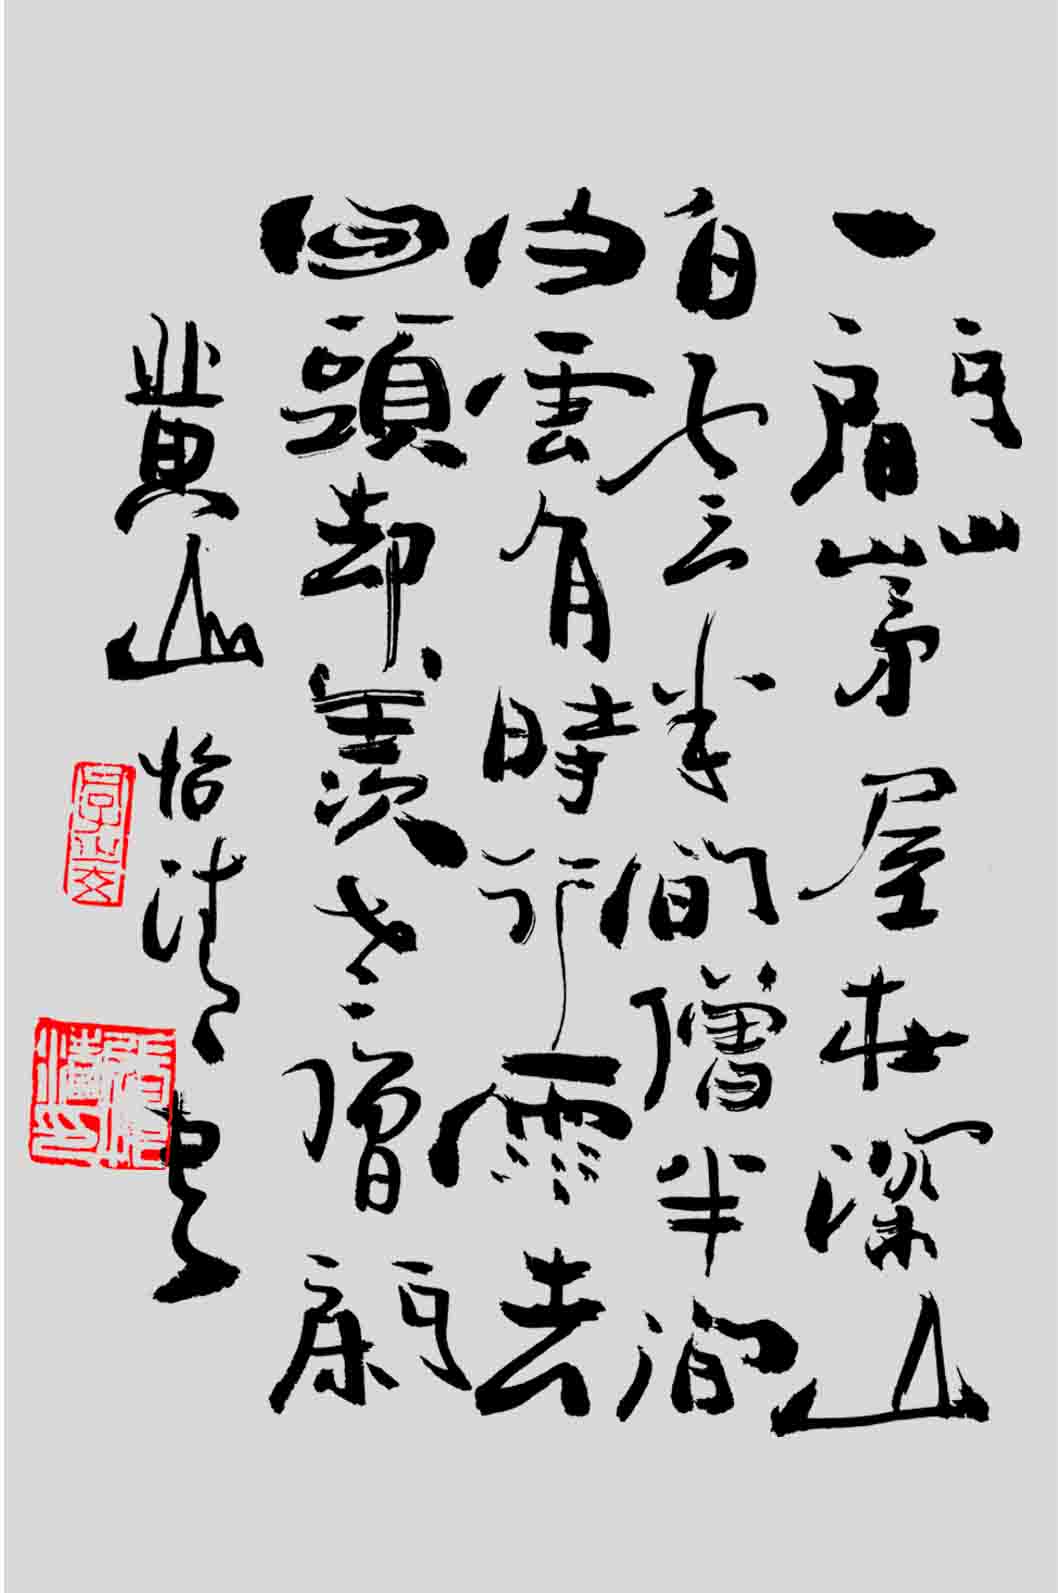 一間茅屋在深山
白云半間僧半間
白雲有時行雨去
回頭却羡老僧閑
黄山怡清書